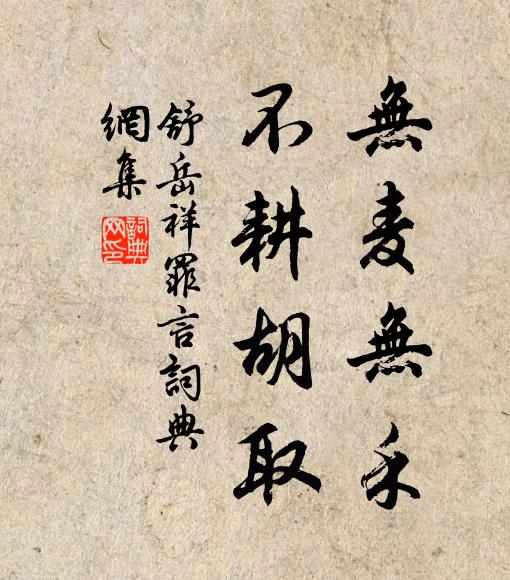 無麦無禾
不耕胡取
舒岳祥罪言詞典
網集
詞典
网印